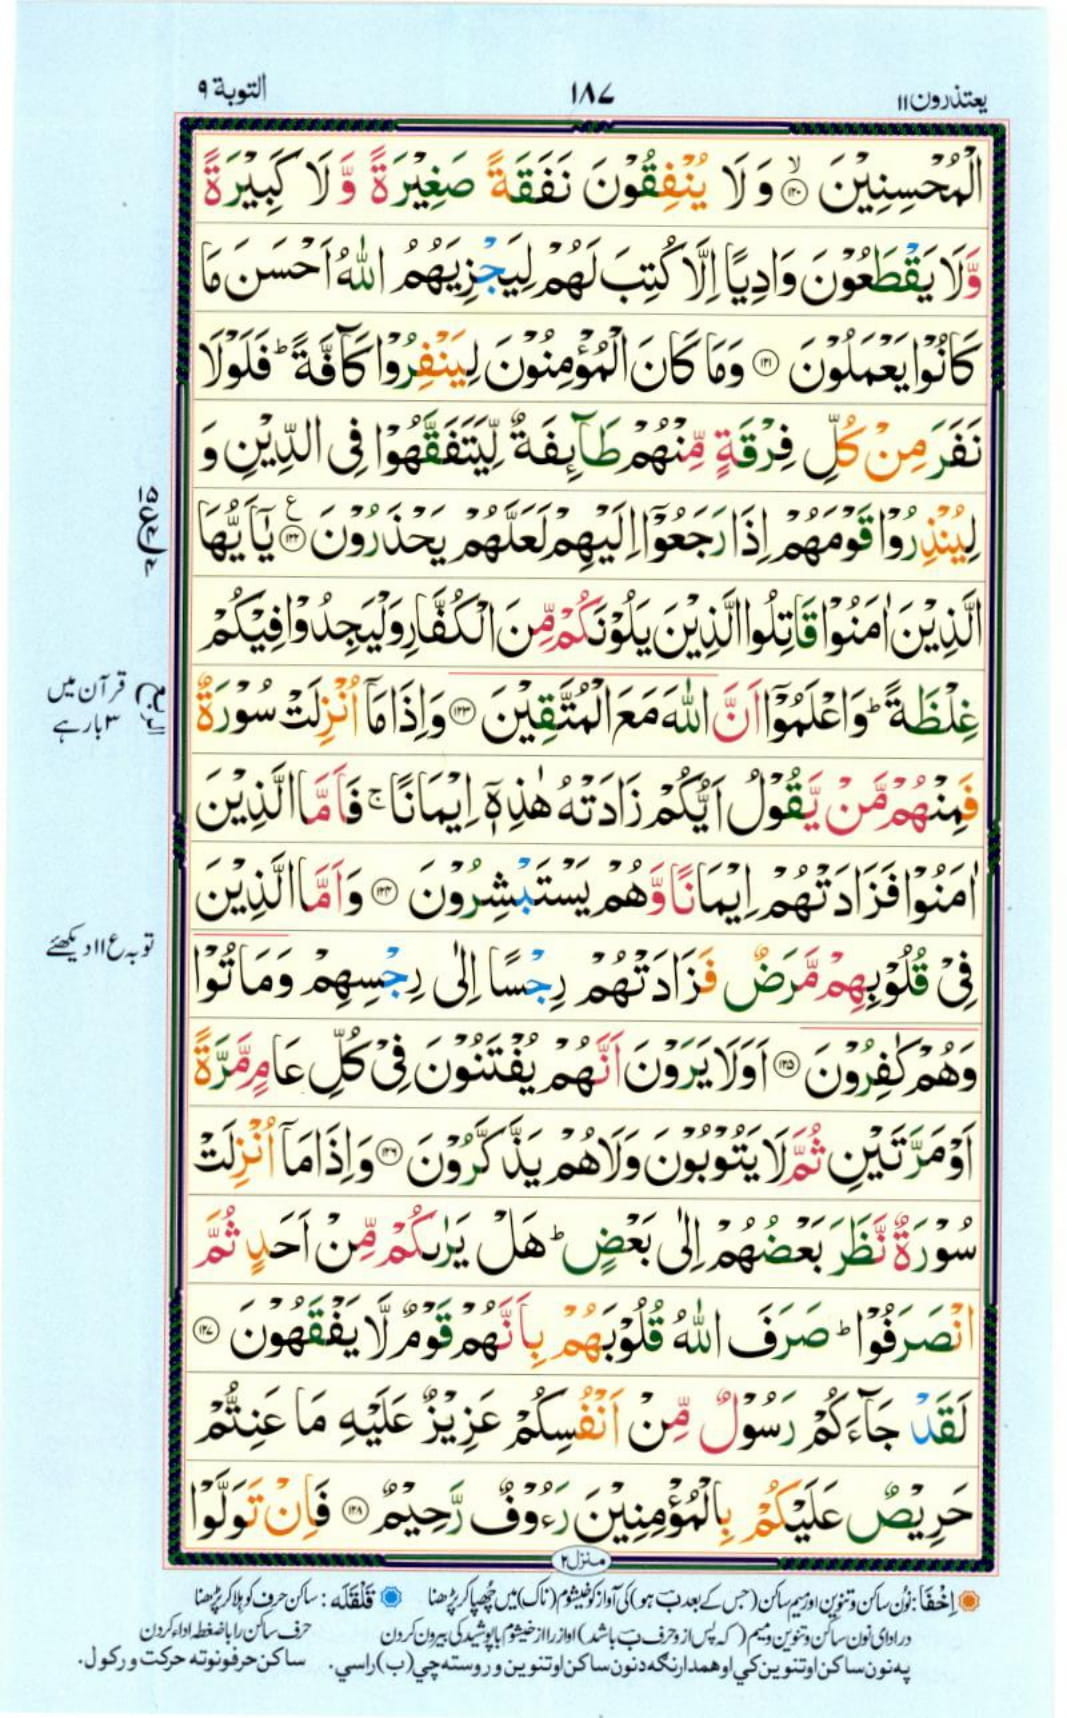 يعتذرون ۱۱
۱۸۷
التوبة ۹
الْمُحْسِنِيْنَ ۙ۝۱۲۰ وَلَا يُنْفِقُوْنَ نَفَقَةً صَغِيْرَةً وَّلَا كَبِيْرَةً
وَّلَا يَقْطَعُوْنَ وَادِيًا اِلَّا كُتِبَ لَهُمْ لِيَجْزِيَهُمُ اللّٰهُ اَحْسَنَ مَا
كَانُوْا يَعْمَلُوْنَ ۝۱۲۱ وَمَا كَانَ الْمُؤْمِنُوْنَ لِيَنْفِرُوْا كَآفَّةً ؕ فَلَوْلَا
نَفَرَ مِنْ كُلِّ فِرْقَةٍ مِّنْهُمْ طَآئِفَةٌ لِّيَتَفَقَّهُوْا فِى الدِّيْنِ وَ
لِيُنْذِرُوْا قَوْمَهُمْ اِذَا رَجَعُوْٓا اِلَيْهِمْ لَعَلَّهُمْ يَحْذَرُوْنَ ۝۱۲۲ ع يٰٓاَيُّهَا
الَّذِيْنَ اٰمَنُوْا قَاتِلُوا الَّذِيْنَ يَلُوْنَكُمْ مِّنَ الْكُفَّارِ وَلْيَجِدُوْا فِيْكُمْ
غِلْظَةً ؕ وَاعْلَمُوْٓا اَنَّ اللّٰهَ مَعَ الْمُتَّقِيْنَ ۝۱۲۳ وَاِذَا مَآ اُنْزِلَتْ سُوْرَةٌ
فَمِنْهُمْ مَّنْ يَّقُوْلُ اَيُّكُمْ زَادَتْهُ هٰذِهٖٓ اِيْمَانًا ۚ فَاَمَّا الَّذِيْنَ
اٰمَنُوْا فَزَادَتْهُمْ اِيْمَانًا وَّهُمْ يَسْتَبْشِرُوْنَ ۝۱۲۴ وَاَمَّا الَّذِيْنَ
فِيْ قُلُوْبِهِمْ مَّرَضٌ فَزَادَتْهُمْ رِجْسًا اِلٰى رِجْسِهِمْ وَمَاتُوْا
وَهُمْ كٰفِرُوْنَ ۝۱۲۵ اَوَلَا يَرَوْنَ اَنَّهُمْ يُفْتَنُوْنَ فِيْ كُلِّ عَامٍ مَّرَّةً
اَوْ مَرَّتَيْنِ ثُمَّ لَا يَتُوْبُوْنَ وَلَا هُمْ يَذَّكَّرُوْنَ ۝۱۲۶ وَاِذَا مَآ اُنْزِلَتْ
سُوْرَةٌ نَّظَرَ بَعْضُهُمْ اِلٰى بَعْضٍ ؕ هَلْ يَرٰىكُمْ مِّنْ اَحَدٍ ثُمَّ
انْصَرَفُوْا ؕ صَرَفَ اللّٰهُ قُلُوْبَهُمْ بِاَنَّهُمْ قَوْمٌ لَّا يَفْقَهُوْنَ ۝۱۲۷
لَقَدْ جَآءَكُمْ رَسُوْلٌ مِّنْ اَنْفُسِكُمْ عَزِيْزٌ عَلَيْهِ مَا عَنِتُّمْ
حَرِيْصٌ عَلَيْكُمْ بِالْمُؤْمِنِيْنَ رَءُوْفٌ رَّحِيْمٌ ۝۱۲۸ فَاِنْ تَوَلَّوْا
قرآن میں
۳ بار ہے
توبہ ع ۱۱ دیکھئے
منزل ۲
اِخْفَا: نُون ساکن وتنوین اور میم ساکن (جس کے بعد ب ہو) کی آواز کو خیشوم (ناک) میں چُھپا کر پڑھنا
قَلْقَلَه: ساکن حرف کو ہلا کر پڑھنا
در ادای نون ساکن وتنوین و میم (که پس از و حرف ب باشد) اواز را از خیشوم با پوشیدگی بیرون کردن
حرف ساکن را با ضغطه اداء کردن
په نون ساکن او تنوین کي او همدارنګه د نون ساکن او تنوین وروسته چي (ب) راسي.
ساکن حرفونو ته حرکت ورکول.